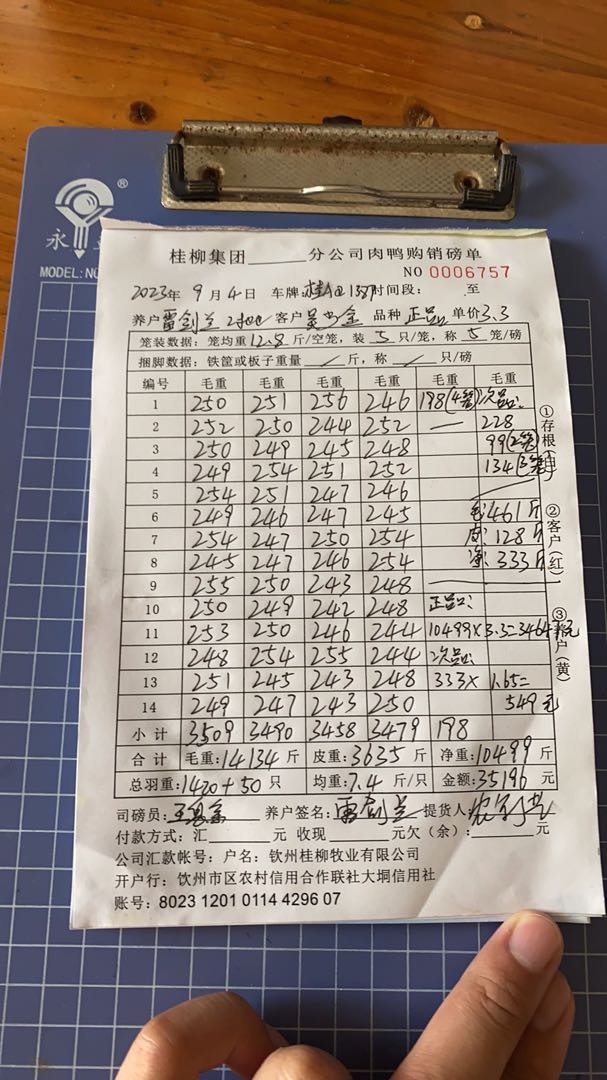 永
MODEL:NO
桂柳集团______分公司肉鸭购销磅单
NO 0006757
2023年 9月4日 车牌:桂 时间段: 至
养户 雷剑兰 客户 品种 正品 单价3.3
笼装数据：笼均重12.8斤/空笼，装5只/笼，称5笼/磅
捆脚数据：铁筐或板子重量／斤，称／只/磅
编号 毛重 毛重 毛重 毛重 毛重 毛重
1 250 251 256 246 198(4笼) 次品:
2 252 250 244 252 — 228
3 250 249 245 248 99(2笼)
4 249 254 251 252 134(3笼)
5 254 251 247 246
6 249 246 247 245 毛:461斤
7 254 247 250 254 皮:128斤
8 245 247 246 254 净:333斤
9 255 250 243 248 —
10 250 249 242 248 正品:
11 253 250 246 244 10499×3.3=34647元
12 248 254 255 244 次品:
13 251 245 243 248 333× 1.65=
14 249 247 243 250 549元
小计 3509 3490 3458 3479 198
合计 毛重:14134斤 皮重:3635斤 净重:10499斤
总羽重:1420+50只 均重:7.4斤/只 金额:35196元
司磅员: 养户签名:雷剑兰 提货人:
付款方式：汇______元 收现______元欠（余）:______元
公司汇款帐号：户名：钦州桂柳牧业有限公司
开户行：钦州市区农村信用合作联社大垌信用社
账号：8023 1201 0114 4296 07
①存根(白)
②客户(红)
③养户(黄)